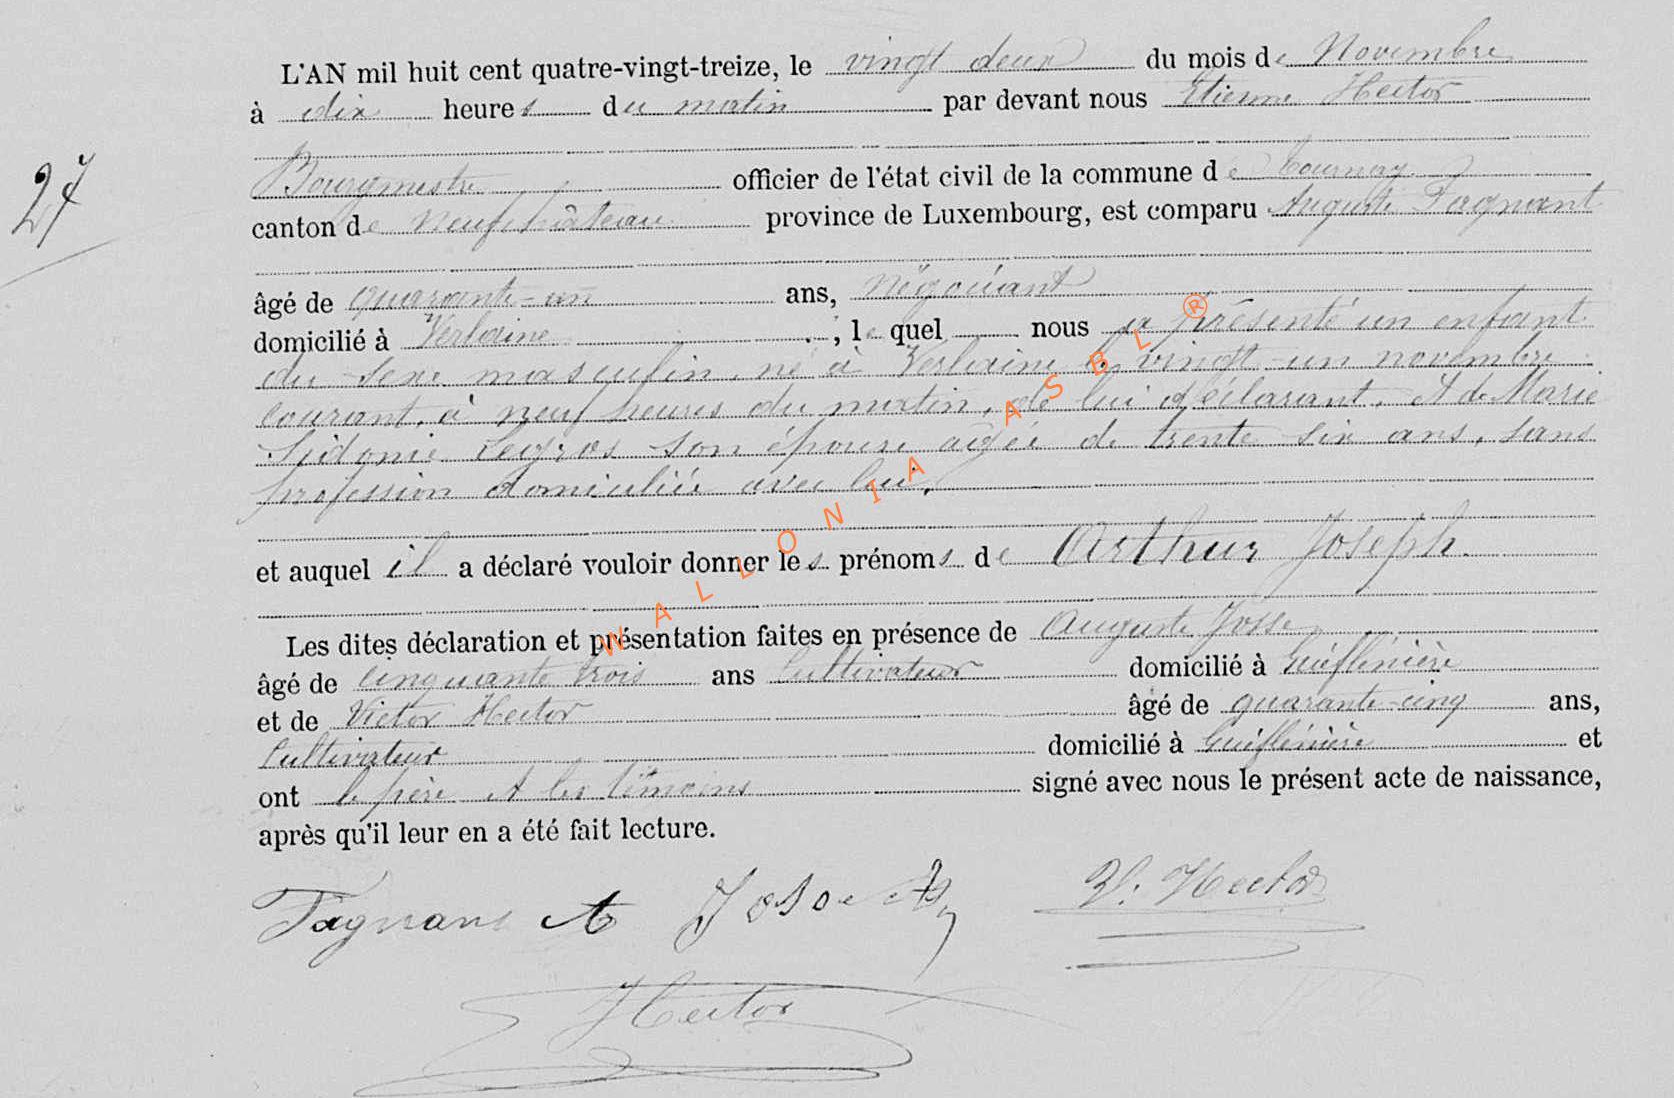 L'AN mil huit cent quatre-vingt-treize, le vingt deux du mois de Novembre
à dix heures du matin par devant nous Etienne Hector
27
Bourgmestre officier de l'état civil de la commune de Tournay
canton de Neufchâteau province de Luxembourg, est comparu Auguste Fagnant
âgé de quarante-un ans, Négociant
domicilié à Verlaine, lequel nous a présenté un enfant
du sexe masculin, né à Verlaine le vingt-un novembre
courant, à neuf heures du matin, de lui déclarant, et de Marie
Sidonie Legros son épouse agée de trente six ans, sans
profession domiciliée avec lui,
et auquel il a déclaré vouloir donner les prénoms de Arthur Joseph.
Les dites déclaration et présentation faites en présence de Auguste Josse
âgé de cinquante trois ans Cultivateur domicilié à
et de Victor Hector âgé de quarante-cinq ans,
Cultivateur domicilié à et
ont le père et les témoins signé avec nous le présent acte de naissance,
après qu'il leur en a été fait lecture.
Fagnant A V. Hector
Hector
WALLONIA ASBL ®